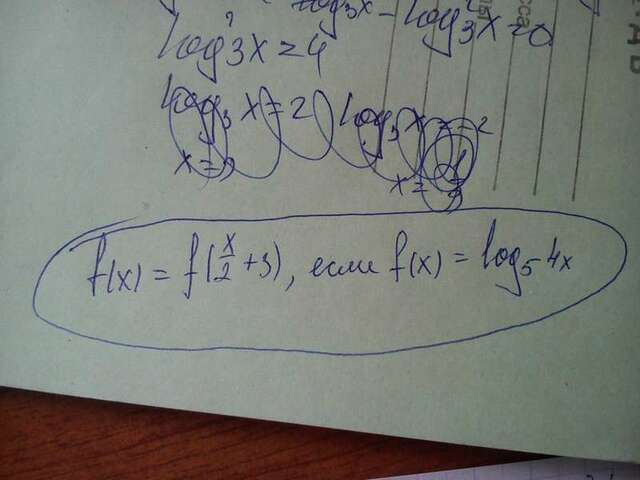 log₃x - log₃²x = 0
log²3x = 4
log₃ x = 2 log₃ x = -2
x = 9
x = 1/9
f(x) = f(x/2 + 3), если f(x) = log₅ 4x